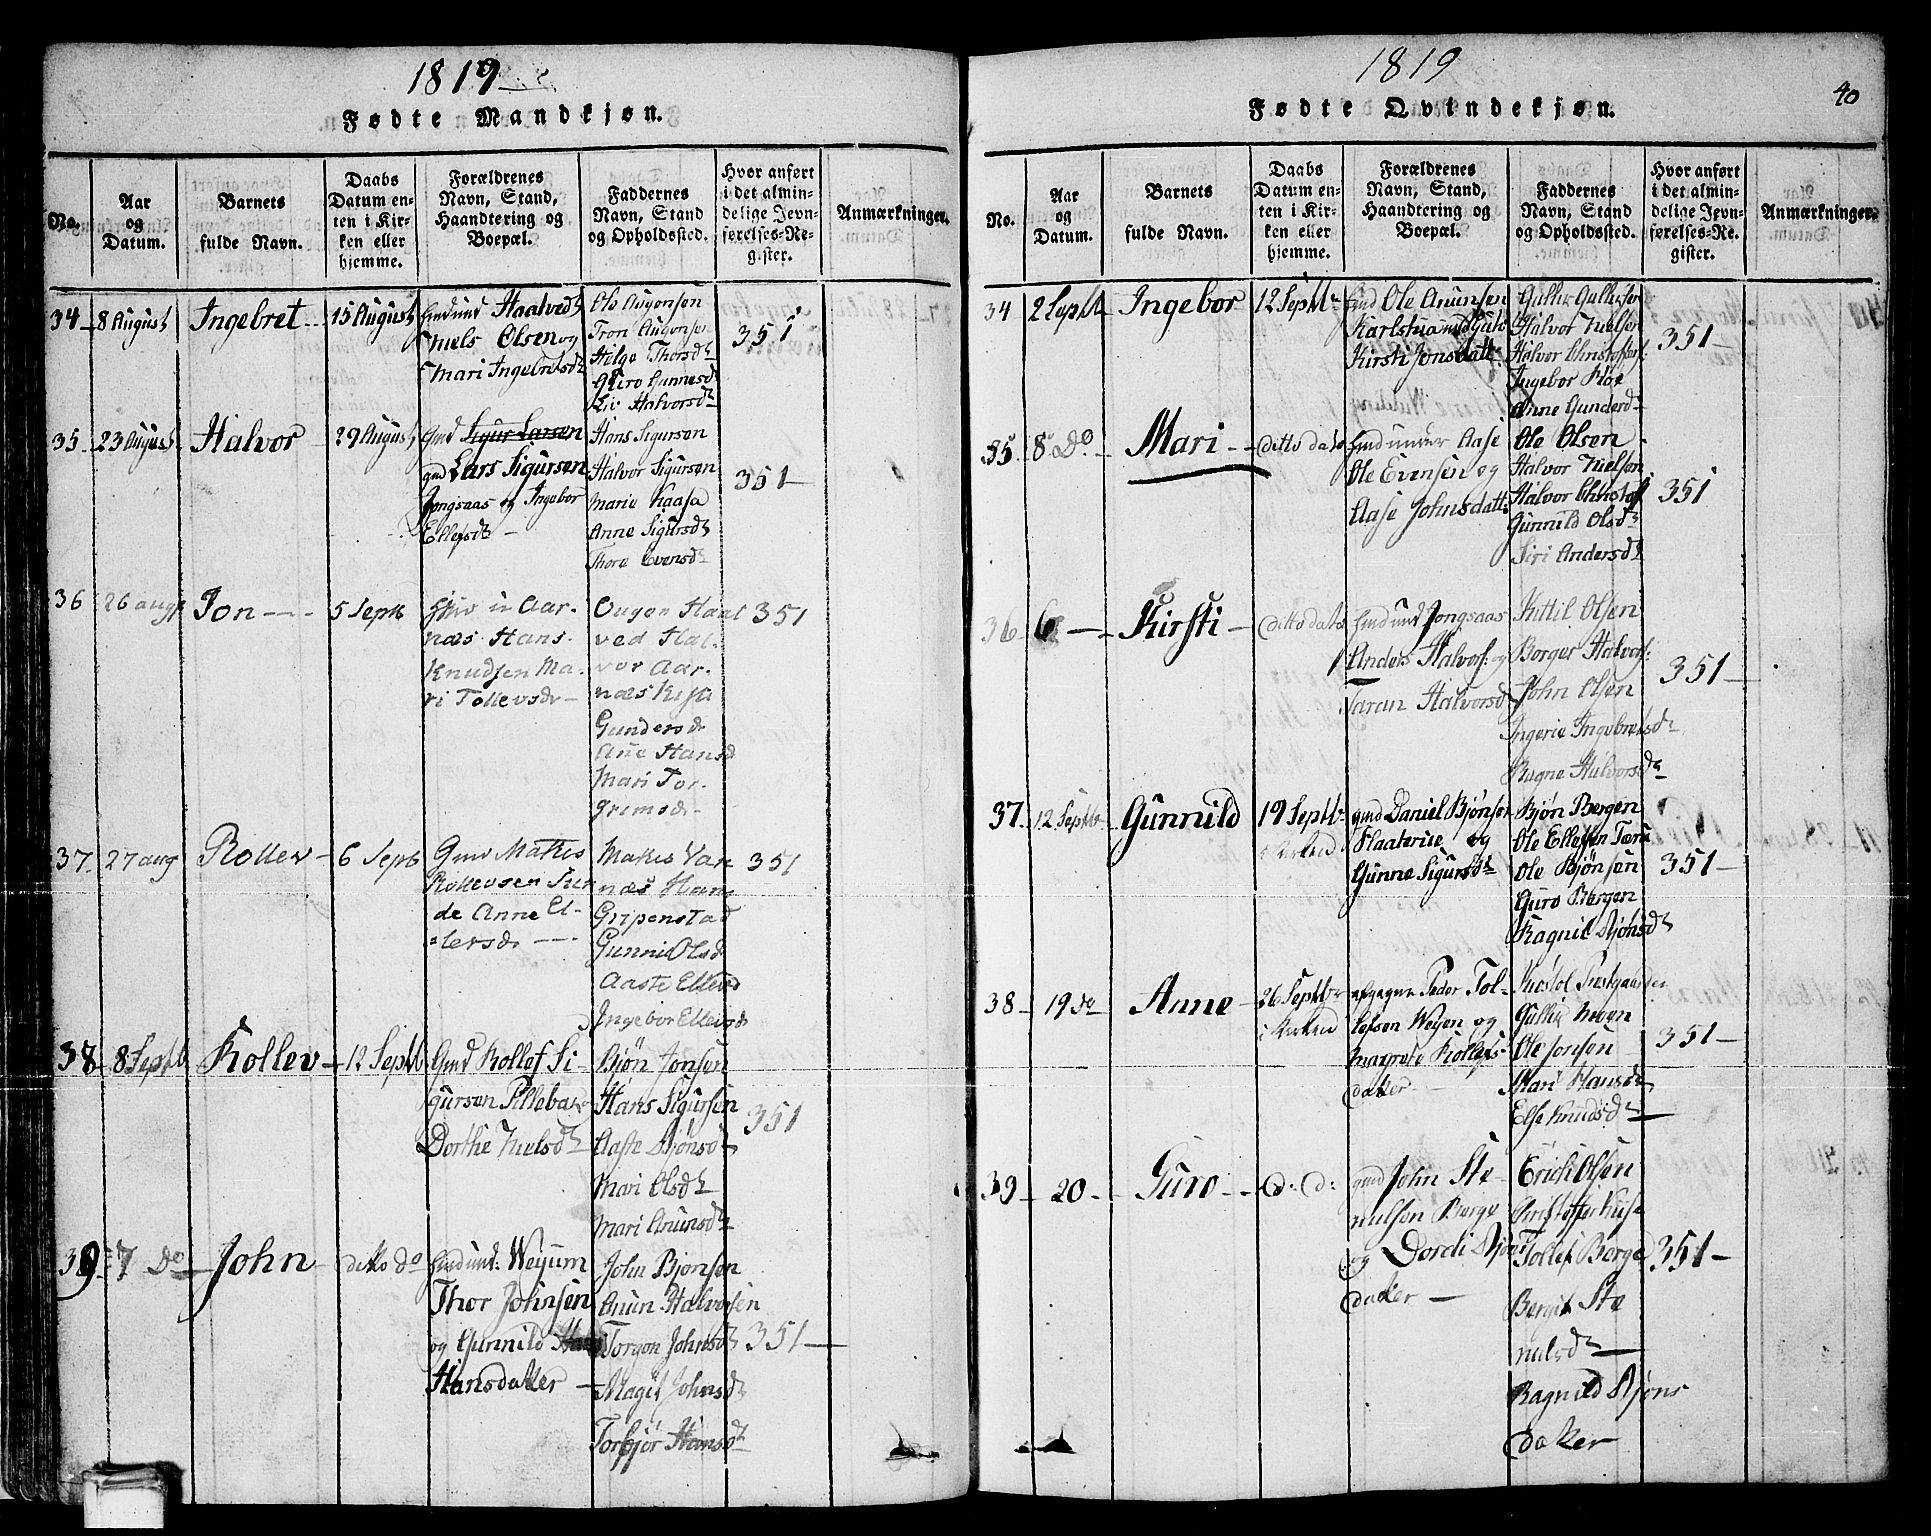 1819
Fødte Mandkjøn.
No.
Aar
og
Datum.
Barnets
fulde Navn.
Daabs
Datum en-
ten i Kir-
ken eller
hjemme.
Forældrenes
Navn, Stand,
Haandtering og
Boepæl.
Faddernes
Navn, Stand
og Opholdssted.
Hvor anført
i det almin-
delige Jevn-
førelses-Re-
gister.
Anmærkninger.
34 8 August Ingebret 15 August
Haalved
Niels Olsen og
Mari Ingebretsd
Ole Augonsen
Tron Augonsen
Helge Thorsd
Guro Gunnesd
Liv Halvorsd
351
35. 23 August Halvor 29 August
Gmd Sigur Larsen
gmd Lars Sigursøn
Jongsaas og Ingebor
Ellefsd
Hans Sigursøn
Halvor Sigursøn
Marie Kaasa
Anne Sigursd
Thore Evensd
351
36 26 aug Jon 5 Septb
Aar-
næs Hans
Knudsen Ma-
ri Tollevsdr
Ougon Haal
ved Hal-
vor Aar-
næs
Gundersdr
Ane Hansd
Mari Tor-
grimsdr
351
37. 27 aug Rollev 6 Septb
Gmd Mathis
Rollevsen
de Anne El-
lersdr
Mathis
næs Hans
Gripenstad
Gunnil Olsd
Aaste Ellevd
Ingebor Ellevsd
351
38 8 Septb Rollev 12 Septb
Gmd Rollef Si-
gursøn
Dorthe Nielsd
Bjøn Jonsen
Hans Sigursen
Aaste Bjønsd
Mari Olsd
Mari Anunsd
351
39 7 Do John ditto do
Weyum
Thor Johnsen
og Gunnild
Hansdatter
John Bjønsen
Anun Halvorsen
Torgon Johnsd
Magit Johnsd
Torbjør Hansd
351
1819
40
Fødte Qvindekjøn.
No.
Aar
og
Datum.
Barnets
fulde Navn.
Daabs
Datum en-
ten i Kir-
ken eller
hjemme.
Forældrenes
Navn, Stand,
Haandtering og
Boepæl.
Faddernes
Navn, Stand
og Opholdssted.
Hvor anført
i det almin-
delige Jevn-
førelses-Re-
gister.
Anmærkninger.
34 2 Septb Ingebor 12 Septbr
Ole Anunsen
Kirsti Jonsdatt:
Gullik Gulliksen
Halvor Nielsen
Halvor Christoffers:
Ingebor Moe
Anne Gunderd
351
35. 8 Do Mari ditto dato
under Aase
Ole Evensen og
Aase Johnsdatt:
Ole Olsen
Halvor Nielsen
Halvor Christoff
Gunnild Olsd
Siri Andersd
351
36 6 Kirsti ditto dato
Jongsaas
Anders Halvors: og
Taran Halvorsd
Kittil Olsen
Borger Halvors:
John Olsen
Ingerie Ingebretsd
Bagne Halvorsd
351
37. 12 Septbr Gunnild 19 Septbr
i Kirken
gmd Daniel Bjønsen
og
Gunne Sigursd
Bjøn Bergen
Ole Ellefsen
Ole Bjønsen
Guro Bergen
Ragnil Bjønsd
351
38 19 do Anne 26 Septbr
i Kirken
Peder Tol-
lefsen Weyen og
Margrete Rollefs-
datter
Gullik
Ole Jonsen
Mari Hansd
Else Knudsd
351
39 20 Guro d: d:
gmd John Ste-
nulsen Berge
og Dordi Bjøns
datter
Erich Olsen
Tollef Berge
Bergit Ste
nulsd
Ragnild Bjøns
datter
351